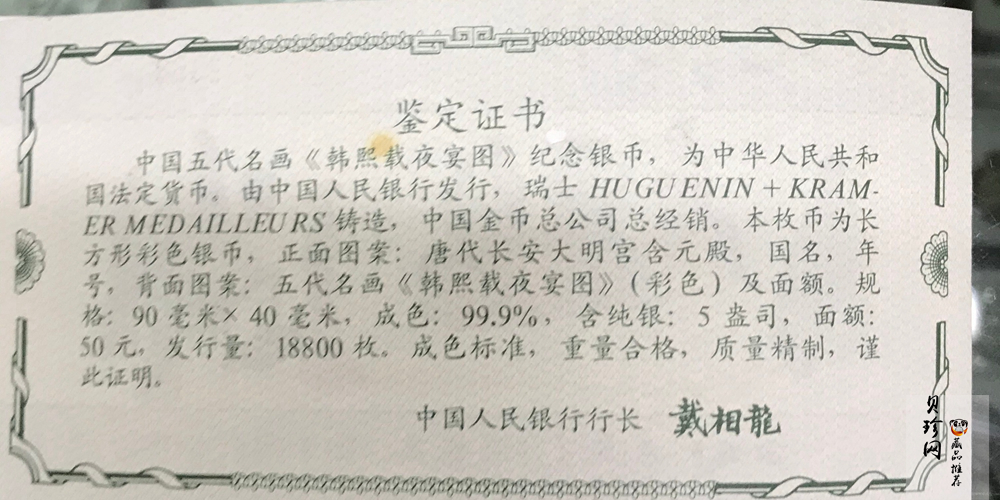 鉴定证书
中国五代名画《韩熙载夜宴图》纪念银币，为中华人民共和
国法定货币。由中国人民银行发行，瑞士 HUGUENIN + KRAM-
ER MEDAILLEURS 铸造，中国金币总公司总经销。本枚币为长
方形彩色银币，正面图案：唐代长安大明宫含元殿，国名，年
号，背面图案：五代名画《韩熙载夜宴图》（彩色）及面额。规
格：90 毫米× 40 毫米，成色：99.9%，含纯银：5 盎司，面额：
50 元，发行量：18800 枚。成色标准，重量合格，质量精制，谨
此证明。
中国人民银行行长 戴相龍
贝珍网
藏品推荐